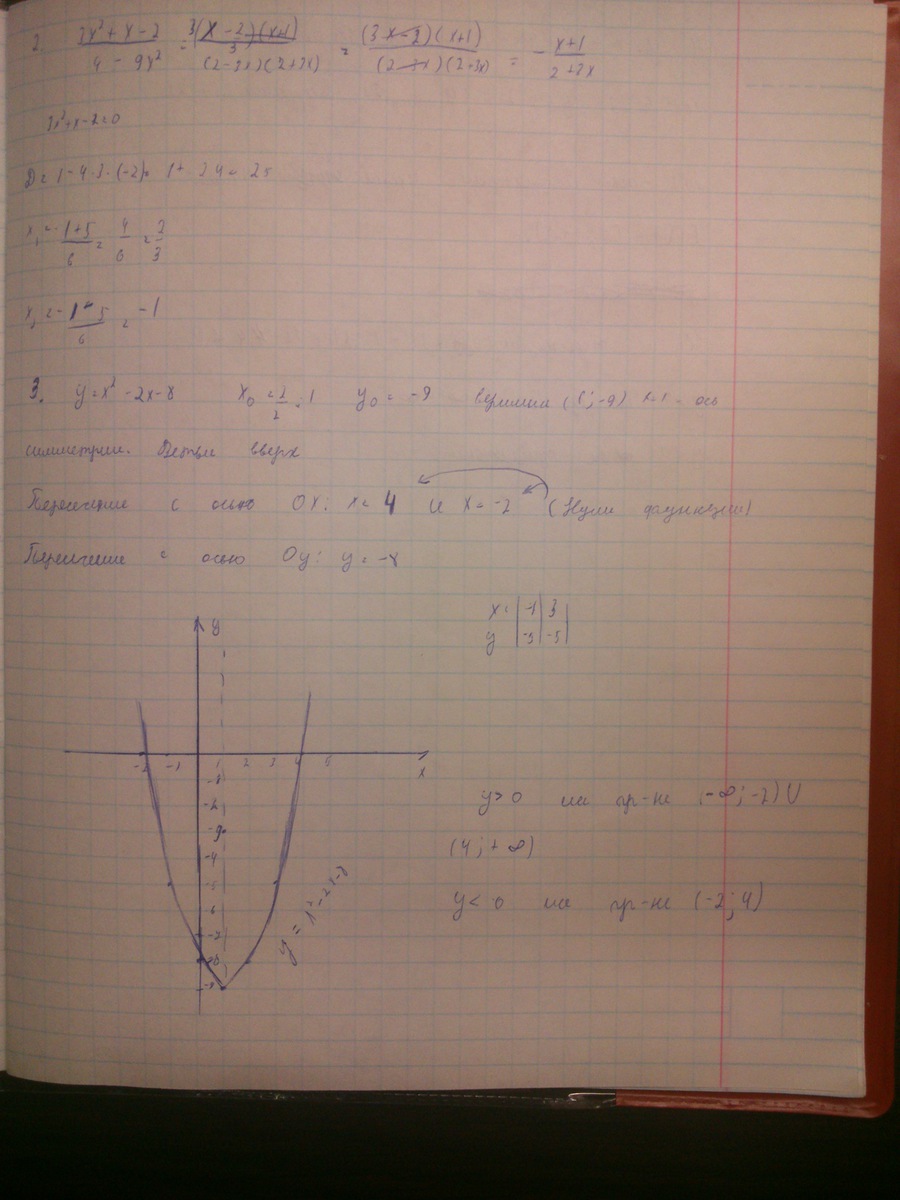 2. (3x² + x - 2)/(4 - 9x²) = 3(x - 2/3)(x+1)/((2-3x)(2+3x)) = (3x-2)(x+1)/((2-3x)(2+3x)) = - (x+1)/(2+3x)
3x²+x-2=0
D = 1-4·3·(-2) = 1+24 = 25
x₁ = (-1+5)/6 = 4/6 = 2/3
x₂ = (-1-5)/6 = -1
3. y=x²-2x-8 x₀ = 2/2 = 1 y₀ = -9 вершина (1;-9) x=1 - ось
симметрии. Ветви вверх
Пересечение с осью Ox: x=4 и x=-2 (Нули функции)
Пересечение с осью Oy: y=-8
x: | -1 | 3 |
y | -5 | -5 |
y
-2 -1 1 2 3 4 5
x
-1
-2
-4
-5
-6
-7
-8
-9
y = x²-2x-8
y>0 на пр-ке (-∞;-2)∪
(4;+∞)
y<0 на пр-ке (-2;4)